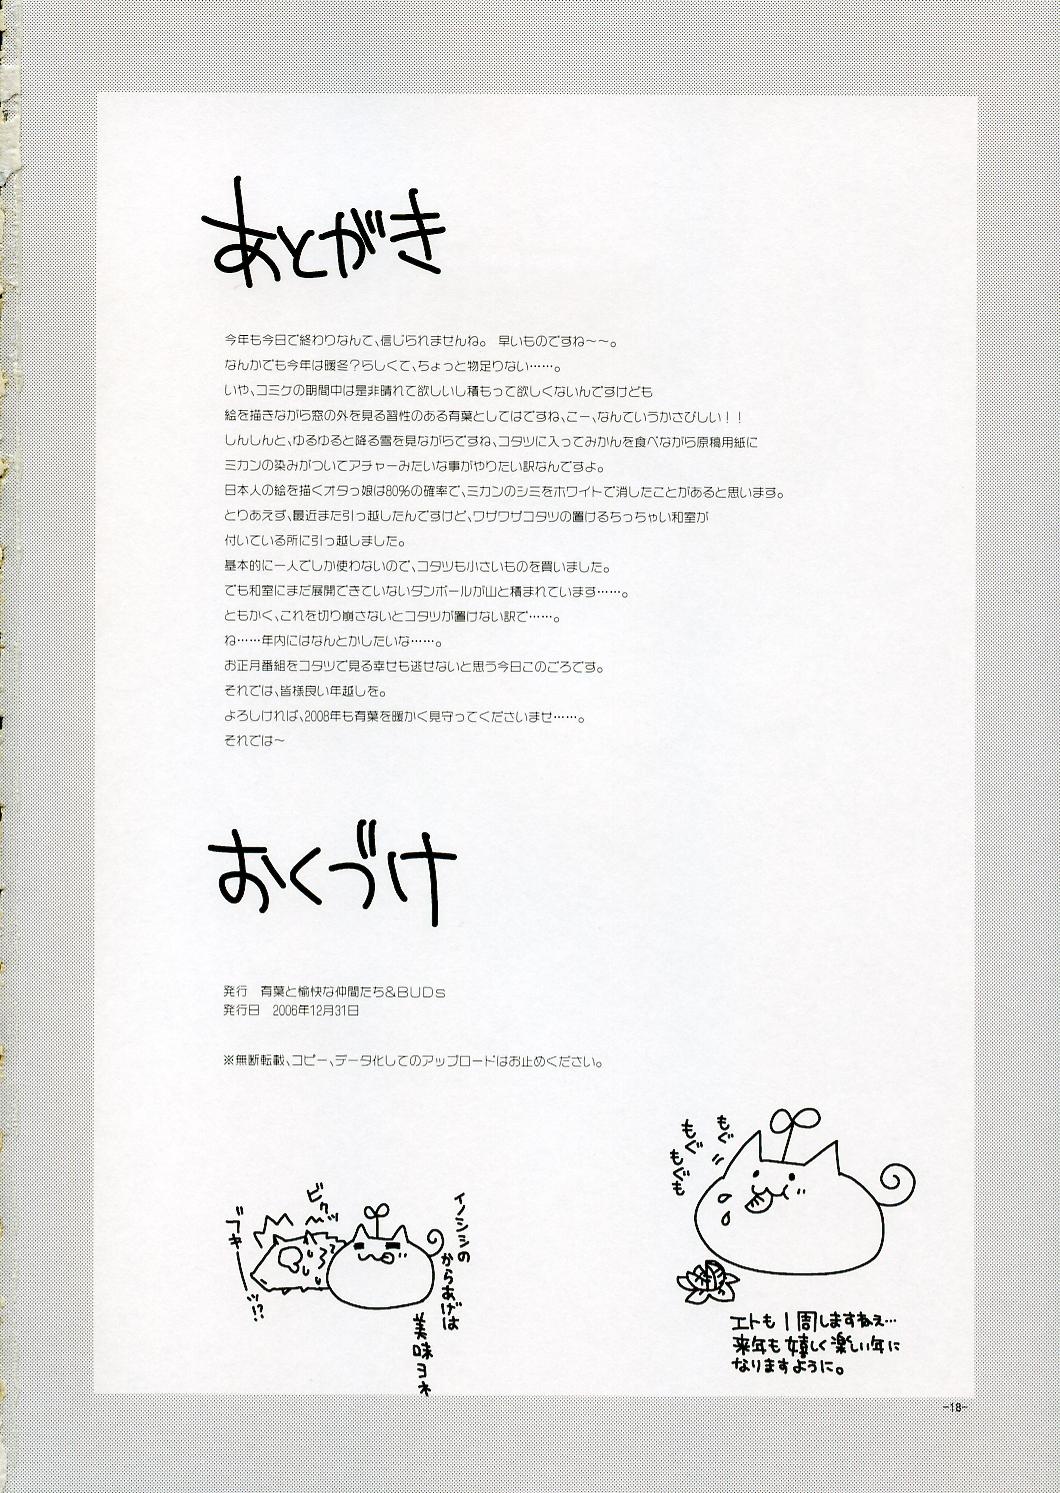 あとがき
今年も今日で終わりなんて、信じられませんね。 早いものですね～～。
なんかでも今年は暖冬？らしくて、ちょっと物足りない……。
いや、コミケの期間中は是非晴れて欲しいし積もって欲しくないんですけども
絵を描きながら窓の外を見る習性のある有葉としてはですね、こー、なんていうかさびしい！！
しんしんと、ゆるゆると降る雪を見ながらですね、コタツに入ってみかんを食べながら原稿用紙に
ミカンの染みがついてアチャーみたいな事がやりたい訳なんですよ。
日本人の絵を描くオタっ娘は80％の確率で、ミカンのシミをホワイトで消したことがあると思います。
とりあえず、最近また引っ越したんですけど、ワザワザコタツの置けるちっちゃい和室が
付いている所に引っ越しました。
基本的に一人でしか使わないので、コタツも小さいものを買いました。
でも和室にまだ展開できていないダンボールが山と積まれています……。
ともかく、これを切り崩さないとコタツが置けない訳で……。
ね……年内にはなんとかしたいな……。
お正月番組をコタツで見る幸せも逃せないと思う今日このごろです。
それでは、皆様良い年越しを。
よろしければ、2008年も有葉を暖かく見守ってくださいませ……。
それでは～
おくづけ
発行 有葉と愉快な仲間たち＆BUDs
発行日 2006年12月31日
※無断転載、コピー、データ化してのアップロードはお止めください。
もぐ
もぐ
もぐも
エトも1周しますねぇ…
来年も嬉しく楽しい年に
なりますように。
イノシシの
からあげは
美味ヨネ
ビクッ
ブキーーッ!?
-18-